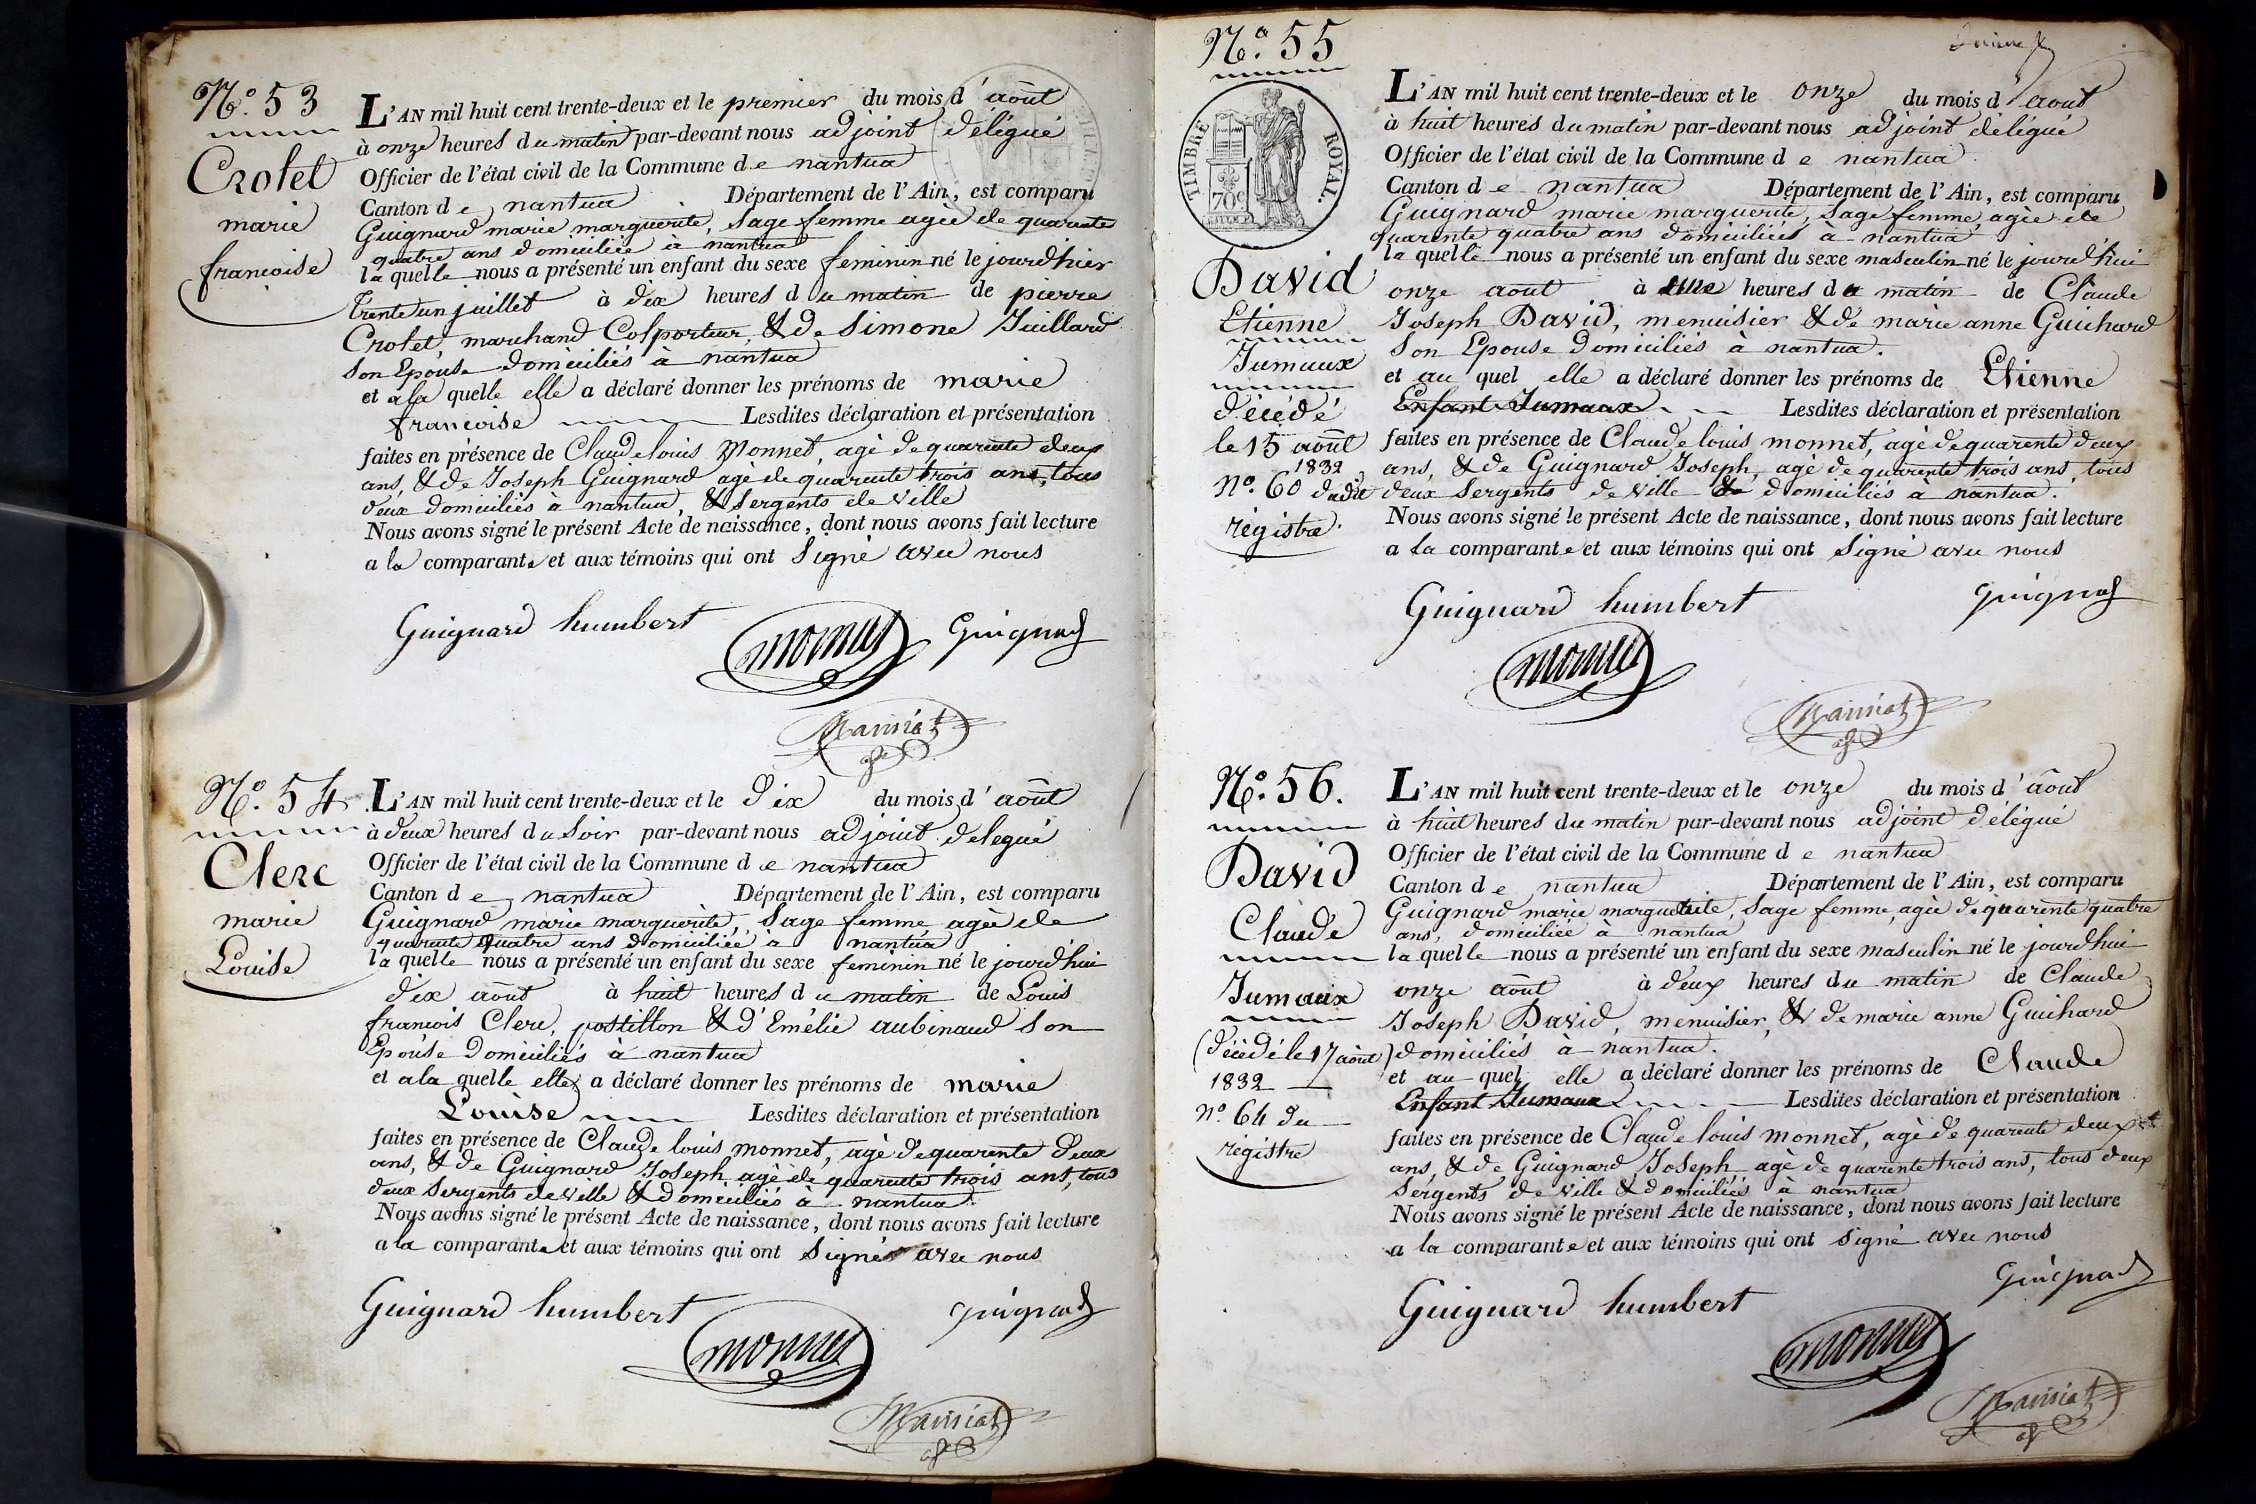 N.° 53
Crotet
marie
francoise
L'AN mil huit cent trente-deux et le premier du mois d'août
à onze heures du matin par-devant nous adjoint délégué
Officier de l'état civil de la Commune de nantua
Canton de nantua Département de l'Ain, est comparu
Guignard marie marguerite, Sage femme agée de quarente
quatre ans domiciliée à nantua
la quelle nous a présenté un enfant du sexe feminin né le jourd'hier
trente un juillet à dix heures du matin de pierre
Crotet, marchand Colporteur, & de Simone Juillard
Son Epouse domiciliés à nantua
et a la quelle elle a déclaré donner les prénoms de marie
francoise Lesdites déclaration et présentation
faites en présence de Claude louis Monnet, agé de quarente deux
ans, & de Joseph Guignard agé de quarente trois ans, tous
deux domiciliés à nantua, & Sergents de ville
Nous avons signé le présent Acte de naissance, dont nous avons fait lecture
a la comparante et aux témoins qui ont Signé avec nous
Guignard humbert monnet Guignard
N.° 54
Clerc
marie
Louise
L'AN mil huit cent trente-deux et le dix du mois d'août
à deux heures du Soir par-devant nous adjoint delegué
Officier de l'état civil de la Commune de nantua
Canton de nantua Département de l'Ain, est comparu
Guignard marie marguerite, Sage femme agée de
quarente quatre ans domiciliée a nantua
la quelle nous a présenté un enfant du sexe feminin né le jourd'hui
dix août à huit heures du matin de Louis
francois Clerc, postillon & d'Emélie aubinaud Son
Epouse Domiciliés à nantua
et a la quelle elle a déclaré donner les prénoms de marie
Louise Lesdites déclaration et présentation
faites en présence de Claude louis monnet, agé de quarente deux
ans, & de Guignard Joseph agé de quarente trois ans, tous
deux Sergents de ville & domiciliés à nantua.
Nous avons signé le présent Acte de naissance, dont nous avons fait lecture
a la comparante et aux témoins qui ont Signés avec nous
Guignard humbert monnet Guignard
N.° 55
TIMBRE ROYAL.
70c
David
Etienne
Jumaux
décédé
le 15 août
1832
N.° 60 dudit
régistre.
L'AN mil huit cent trente-deux et le onze du mois d'août
à huit heures du matin par-devant nous adjoint délégué
Officier de l'état civil de la Commune de nantua
Canton de nantua Département de l'Ain, est comparu
Guignard marie marguerite, Sage femme, agée de
quarente quatre ans domiciliés à nantua
la quelle nous a présenté un enfant du sexe masculin né le jourd'hui
onze août à une heures du matin de Claude
Joseph David, menuisier & de marie anne Guichard
Son Epouse Domiciliés à nantua.
et au quel elle a déclaré donner les prénoms de Etienne
Enfant Jumaux Lesdites déclaration et présentation
faites en présence de Claude louis monnet, agé de quarente deux
ans, & de Guignard Joseph, agé de quarente trois ans, tous
deux Sergents de ville & domiciliés à nantua.
Nous avons signé le présent Acte de naissance, dont nous avons fait lecture
a la comparante et aux témoins qui ont Signé avec nous
Guignard humbert Guignard
monnet
N.° 56.
David
Claude
Jumaux
(décédé le 17 août)
1832
n.° 64 du
régistre
L'AN mil huit cent trente-deux et le onze du mois d'août
à huit heures du matin par-devant nous adjoint délégué
Officier de l'état civil de la Commune de nantua
Canton de nantua Département de l'Ain, est comparu
Guignard marie marguerite, Sage femme, agée de quarente quatre
ans, domiciliée à nantua
la quelle nous a présenté un enfant du sexe masculin né le jourd'hui
onze août à deux heures du matin de Claude
Joseph David, menuisier, & de marie anne Guichard
domiciliés à nantua.
et au quel elle a déclaré donner les prénoms de Claude
Enfant Jumaux Lesdites déclaration et présentation
faites en présence de Claude louis monnet, agé de quarente deux
ans, & de Guignard Joseph agé de quarente trois ans, tous deux
Sergents de ville & domiciliés à nantua
Nous avons signé le présent Acte de naissance, dont nous avons fait lecture
a la comparante et aux témoins qui ont Signé avec nous
Guignard humbert Guignard
monnet